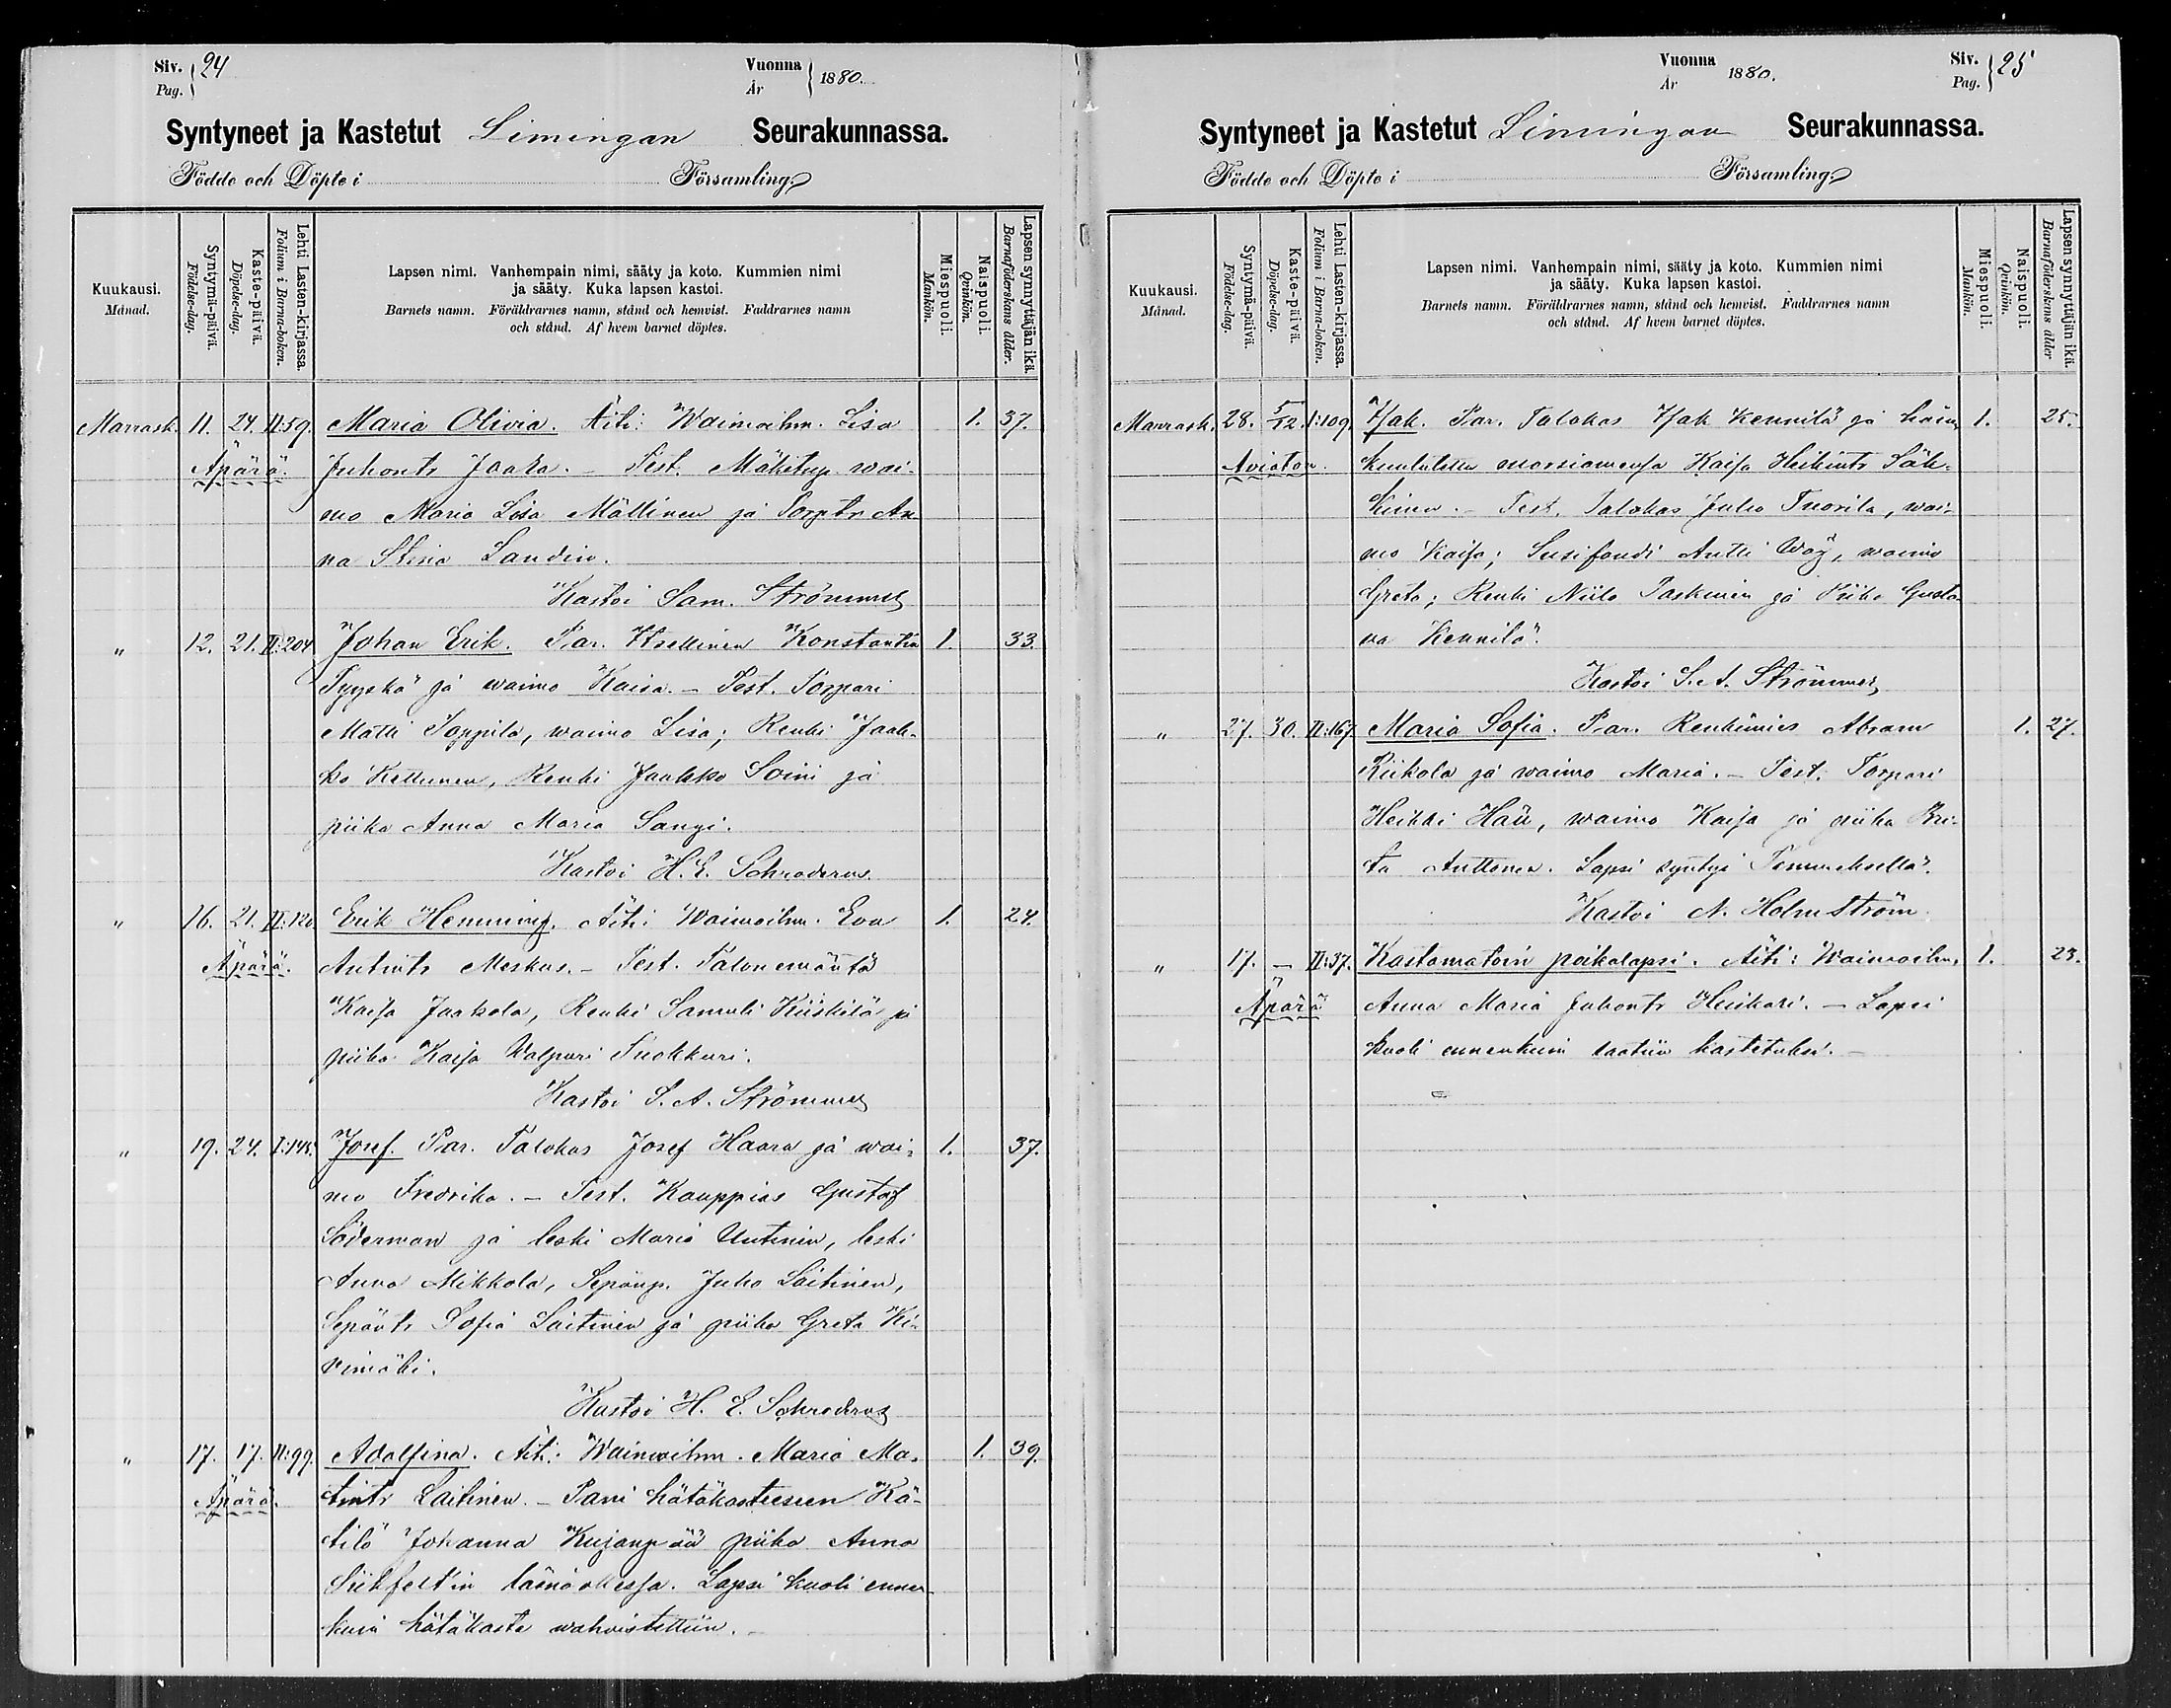 Siv. 24
Pag.
Vuonna
År 1880.
Syntyneet ja Kastetut Limingan Seurakunnassa.
Födde och Döpte i Församling
Kuukausi.
Månad.
Syntymä-päivä.
Födelse-dag.
Kaste-päivä.
Döpelse-dag.
Lehti Lasten-kirjassa.
Folium i Barna-boken.
Lapsen nimi. Vanhempain nimi, sääty ja koto. Kummien nimi
ja sääty. Kuka lapsen kastoi.
Barnets namn. Föräldrarnes namn, stånd och hemvist. Faddrarnes namn
och stånd. Af hvem barnet döptes.
Miespuoli.
Mankön.
Naispuoli.
Qvinkön.
Lapsen synnyttäjän ikä.
Barnaföderskans ålder.
Marrask. 11. 24. II:59. Maria Olivia. Äiti: Waimoihm. Lisa 1. 37.
Äpärä. Juhontr Jaara. – Test. Mäkitup. wai-
mo Maria Lisa Mällinen ja Torptr An-
na Stina Sandin.
Kastoi Sam. Strömmer
" 12. 21. II:204 Johan Erik. Par. Itsellinen Konstantin 1. 33.
Tyyskä ja waimo Kaisa. – Test. Torpari
Matti Toppila, waimo Lisa; Renki Jaak-
ko Kettunen, Renki Jaakko Soini ja
piika Anna Maria Sangi.
Kastoi H. E. Schroderus.
" 16. 21. II:120 Erik Hemming. Äiti: Waimoihm. Eva 1. 24.
Äpärä. Antintr Meskus. – Test. Talonemäntä
Kaisa Jaakola, Renki Samuli Kiiskilä ja
piika Kaisa Walpuri Tuokkuri.
Kastoi S. A. Strömmer
" 19. 24. I:145. Josef. Par. Talokas Josef Haara ja wai- 1. 37.
mo Fredrika. – Test. Kauppias Gustaf
Söderman ja leski Maria Uutinen, leski
Anna Mikkola, Sepänp. Juho Laitinen,
Sepäntr Sofia Laitinen ja piika Greta Ki-
vimäki.
Kastoi H. E. Schroderus
" 17. 17. II:99. Adolfina. Äiti: Waimoihm. Maria Ma- 1. 39.
Äpärä. tintr Laitinen. – Pani hätäkasteeseen Kä-
tilö Johanna Kujanpää piika Anna
läsnäollessa. Lapsi kuoli ennen
kuin hätäkaste wahvistettiin. –
Vuonna
År 1880.
Siv. 25
Pag.
Syntyneet ja Kastetut Limingan Seurakunnassa.
Födde och Döpte i Församling
Kuukausi.
Månad.
Syntymä-päivä.
Födelse-dag.
Kaste-päivä.
Döpelse-dag.
Lehti Lasten-kirjassa.
Folium i Barna-boken.
Lapsen nimi. Vanhempain nimi, sääty ja koto. Kummien nimi
ja sääty. Kuka lapsen kastoi.
Barnets namn. Föräldrarnes namn, stånd och hemvist. Faddrarnes namn
och stånd. Af hvem barnet döptes.
Miespuoli.
Mankön.
Naispuoli.
Qvinkön.
Lapsen synnyttäjän ikä.
Barnaföderskans ålder
Marrask. 28. 5/12. I:109. Isak. Par. Talokas Isak Kennilä ja 1. 25.
Avioton. kuulutettu morsiamensa Kaisa Heikintr Säk-
kinen. – Test. Talokas Juho Tuorila, wai-
mo Kaisa; Antti Wäg, waimo
Greta; Renki Niilo Paskinen ja Piika Gusta-
va Kennilä.
Kastoi S. A. Strömmer
" 27. 30. II:167. Maria Sofia. Par. Renkimies Abram 1. 27.
Riikola ja waimo Maria. – Test. Torpari
Heikki Hau, waimo Kaisa ja piika Bri-
ta Anttonen. Lapsi syntyi Temmeksellä.
Kastoi A. Holmström
" 17. – II:37. Kastamatoin poikalapsi. Äiti: Waimoihm. 1. 23.
Äpärä Anna Maria Juhontr Heikari. – Lapsi
kuoli ennenkuin saatiin kastetuksi. –